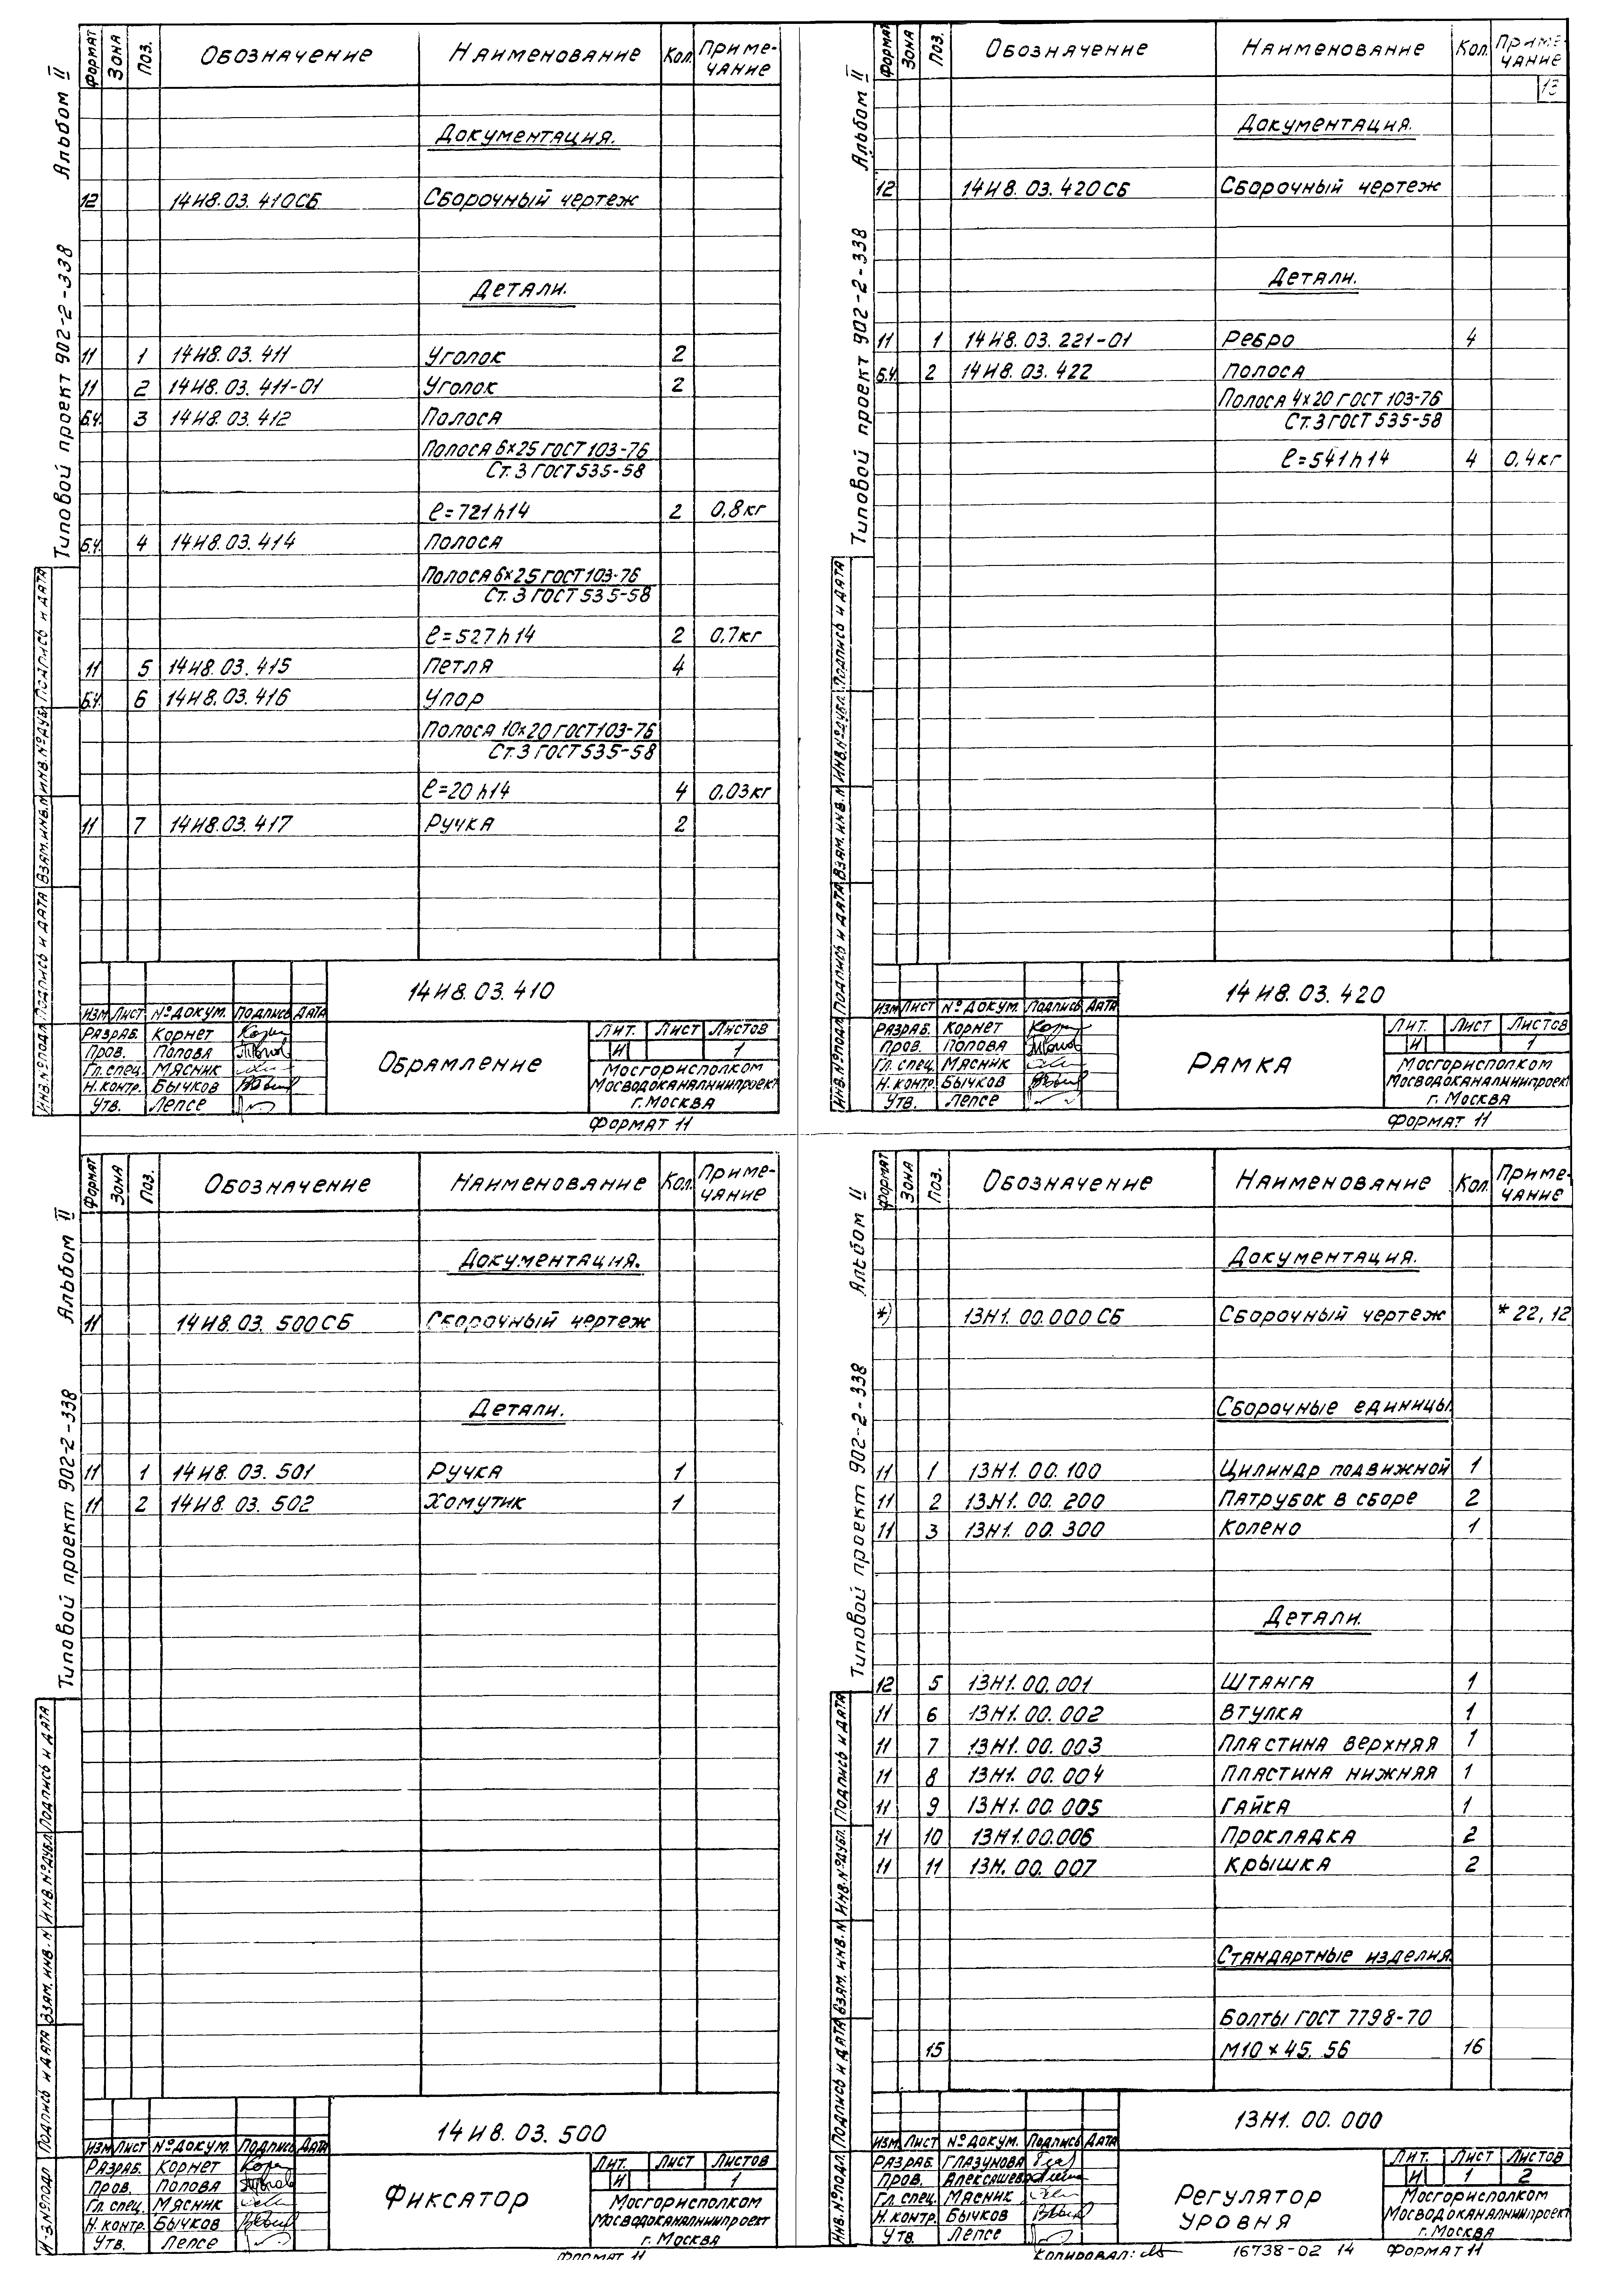 Формат Зона Поз. Обозначение Наименование Кол. Примечание
Альбом II
Типовой проект 902-2-338
Документация.
12 14И8.03.410СБ Сборочный чертеж
Детали.
11 1 14И8.03.411 Уголок 2
11 2 14И8.03.411-01 Уголок 2
б.ч. 3 14И8.03.412 Полоса
Полоса 6×25 ГОСТ 103-76
Ст.3 ГОСТ 535-58
ℓ=721h14 2 0,8кг
б.ч. 4 14И8.03.414 Полоса
Полоса 6×25 ГОСТ 103-76
Ст.3 ГОСТ 535-58
ℓ=527h14 2 0,7кг
11 5 14И8.03.415 Петля 4
б.ч. 6 14И8.03.416 Упор
Полоса 10×20 ГОСТ 103-76
Ст.3 ГОСТ 535-58
ℓ=20h14 4 0,03кг
11 7 14И8.03.417 Ручка 2
Инв.№подл. Подпись и дата Взам.инв.№ Инв.№дубл. Подпись и дата
14И8.03.410
Изм Лист №докум. Подпись Дата
Разраб. Корнет
Пров. Попова
Гл. спец. Мясник
Н.контр. Бычков
Утв. Лепсе
Обрамление
Лит. Лист Листов
И 1
Мосгорисполком
Мосводоканалниипроект
г. Москва
Формат 11
Формат Зона Поз. Обозначение Наименование Кол. Примечание
13
Альбом II
Типовой проект 902-2-338
Документация.
12 14И8.03.420СБ Сборочный чертеж
Детали.
11 1 14И8.03.221-01 Ребро 4
б.ч. 2 14И8.03.422 Полоса
Полоса 4×20 ГОСТ 103-76
Ст.3 ГОСТ 535-58
ℓ=541h14 4 0,4кг
Инв.№подл. Подпись и дата Взам.инв.№ Инв.№дубл. Подпись и дата
14И8.03.420
Изм Лист №докум. Подпись Дата
Разраб. Корнет
Пров. Попова
Гл. спец. Мясник
Н.контр. Бычков
Утв. Лепсе
Рамка
Лит. Лист Листов
И 1
Мосгорисполком
Мосводоканалниипроект
г. Москва
Формат 11
Формат Зона Поз. Обозначение Наименование Кол. Примечание
Альбом II
Типовой проект 902-2-338
Документация.
11 14И8.03.500СБ Сборочный чертеж
Детали.
11 1 14И8.03.501 Ручка 1
11 2 14И8.03.502 Хомутик 1
Подпись и дата Взам.инв.№ Инв.№дубл. Подпись и дата
14И8.03.500
Изм Лист №докум. Подпись Дата
Разраб. Корнет
Пров. Попова
Гл. спец. Мясник
Н.контр. Бычков
Утв. Лепсе
Фиксатор
Лит. Лист Листов
И 1
Мосгорисполком
Мосводоканалниипроект
г. Москва
Формат 11
Формат Зона Поз. Обозначение Наименование Кол. Примечание
Альбом II
Типовой проект 902-2-338
Документация.
*) 13Н1.00.000СБ Сборочный чертеж *22,12
Сборочные единицы.
11 1 13Н1.00.100 Цилиндр подвижной 1
11 2 13Н1.00.200 Патрубок в сборе 2
11 3 13Н1.00.300 Колено 1
Детали.
12 5 13Н1.00.001 Штанга 1
11 6 13Н1.00.002 Втулка 1
11 7 13Н1.00.003 Пластина верхняя 1
11 8 13Н1.00.004 Пластина нижняя 1
11 9 13Н1.00.005 Гайка 1
11 10 13Н1.00.006 Прокладка 2
11 11 13Н.00.007 Крышка 2
Стандартные изделия.
Болты ГОСТ 7798-70
15 М10×45.56 16
Инв.№подл. Подпись и дата Взам.инв.№ Инв.№дубл. Подпись и дата
13Н1.00.000
Изм Лист №докум. Подпись Дата
Разраб. Глазунова
Пров. Алексашева
Гл. спец. Мясник
Н.контр. Бычков
Утв. Лепсе
Регулятор
уровня
Лит. Лист Листов
И 1 2
Мосгорисполком
Мосводоканалниипроект
г. Москва
Копировал: 16738-02 14 Формат 11